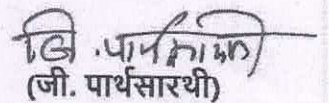 जी. पार्थसारथी
(जी. पार्थसारथी)